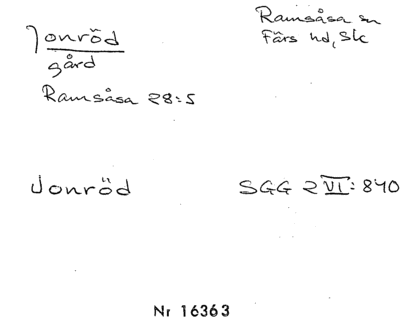 Jonröd
gård
Ramsåsa 28:5
Ramsåsa sn
Färs hd, Sk
Jonröd
SGG 2 VI: 840
Nr 16363